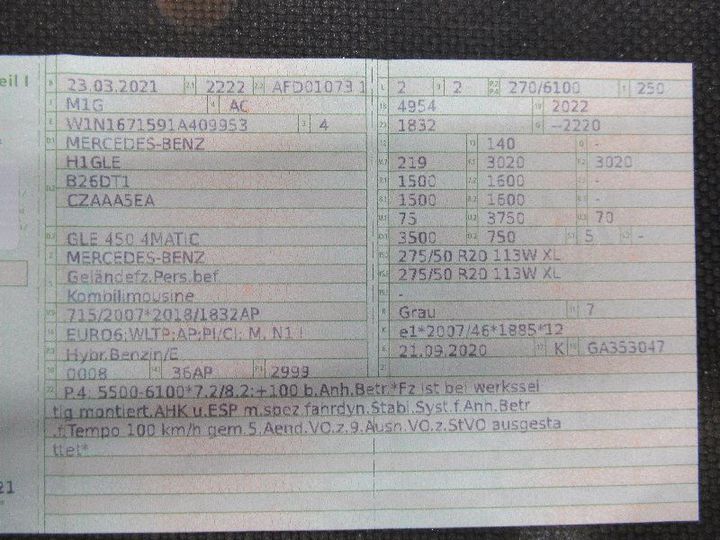 eil I
23.03.2021 2222 AFD01073 1
M1G AC
W1N1671591A409953 4
MERCEDES-BENZ
H1GLE
B26DT1
CZAAA5EA
GLE 450 4MATIC
MERCEDES-BENZ
Geländefz.Pers.bef.
Kombilimousine
715/2007*2018/1832AP
EURO6;WLTP;AP;PI/CI; M, N1 I
Hybr.Benzin/E
0008 36AP 2999
2 2 270/6100 250
4954 2022
1832 --2220
- 140 -
219 3020 3020
1500 1600 -
1500 1600 -
75 3750 70
3500 750 5 -
275/50 R20 113W XL
275/50 R20 113W XL
-
Grau 7
e1*2007/46*1885*12
21.09.2020 K GA353047
P.4: 5500-6100*7.2/8.2:+100 b.Anh.Betr.*Fz ist bei werkssei
tig montiert.AHK u.ESP m.spez fahrdyn.Stabi.Syst.f.Anh.Betr
.f.Tempo 100 km/h gem.5.Aend.VO.z.9.Ausn.VO.z.StVO ausgesta
ttet*
21